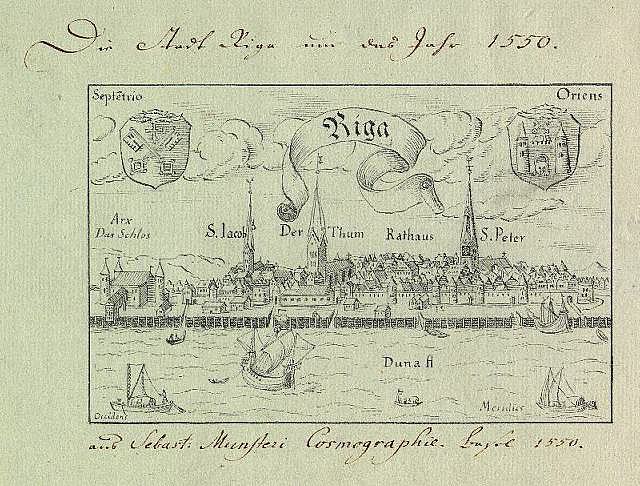 Die Stadt Riga um das Jahr 1550.
Septētrio
Oriens
Riga
Arx
Das Schlos
S. Jacob
Der Thum
Rathaus
S. Peter
Duna fl
Occidens
Meridies
aus Sebast: Munsteri Cosmographie. Basel 1550.